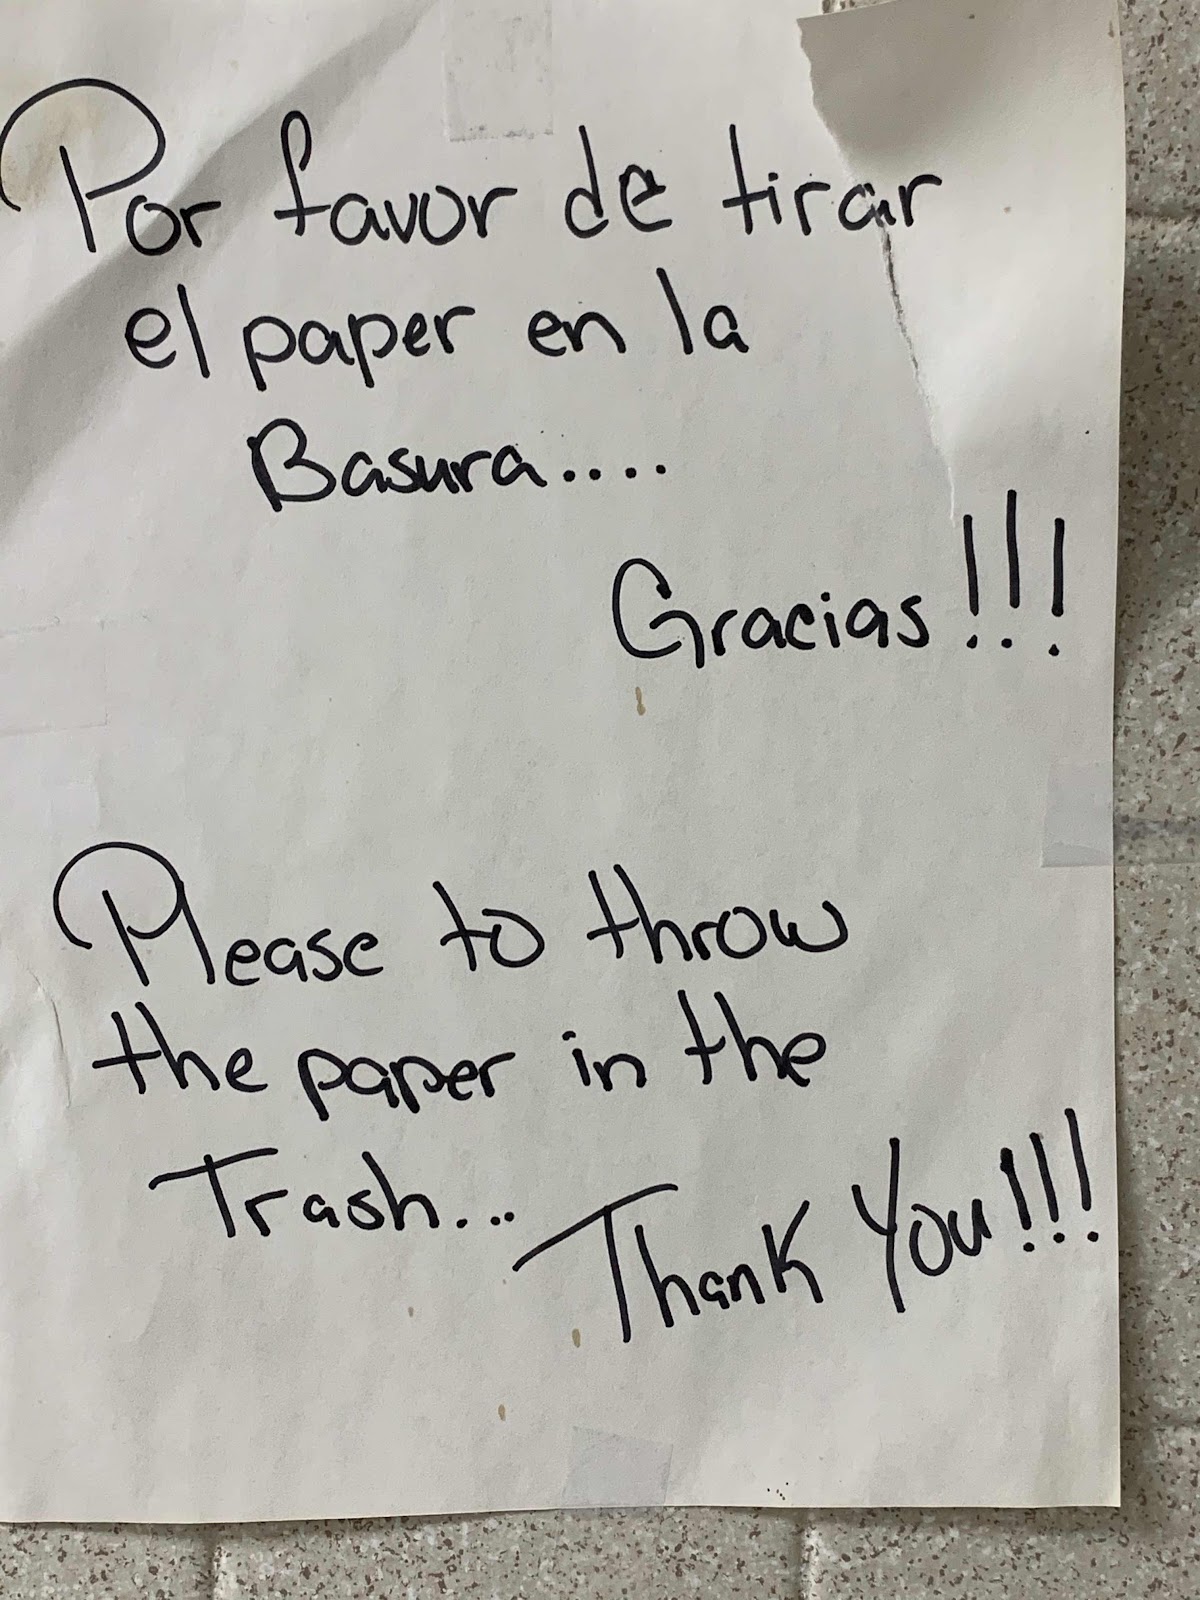 Por favor de tirar
el paper en la
Basura....
Gracias!!!
Please to throw
the paper in the
Trash...
Thank You!!!